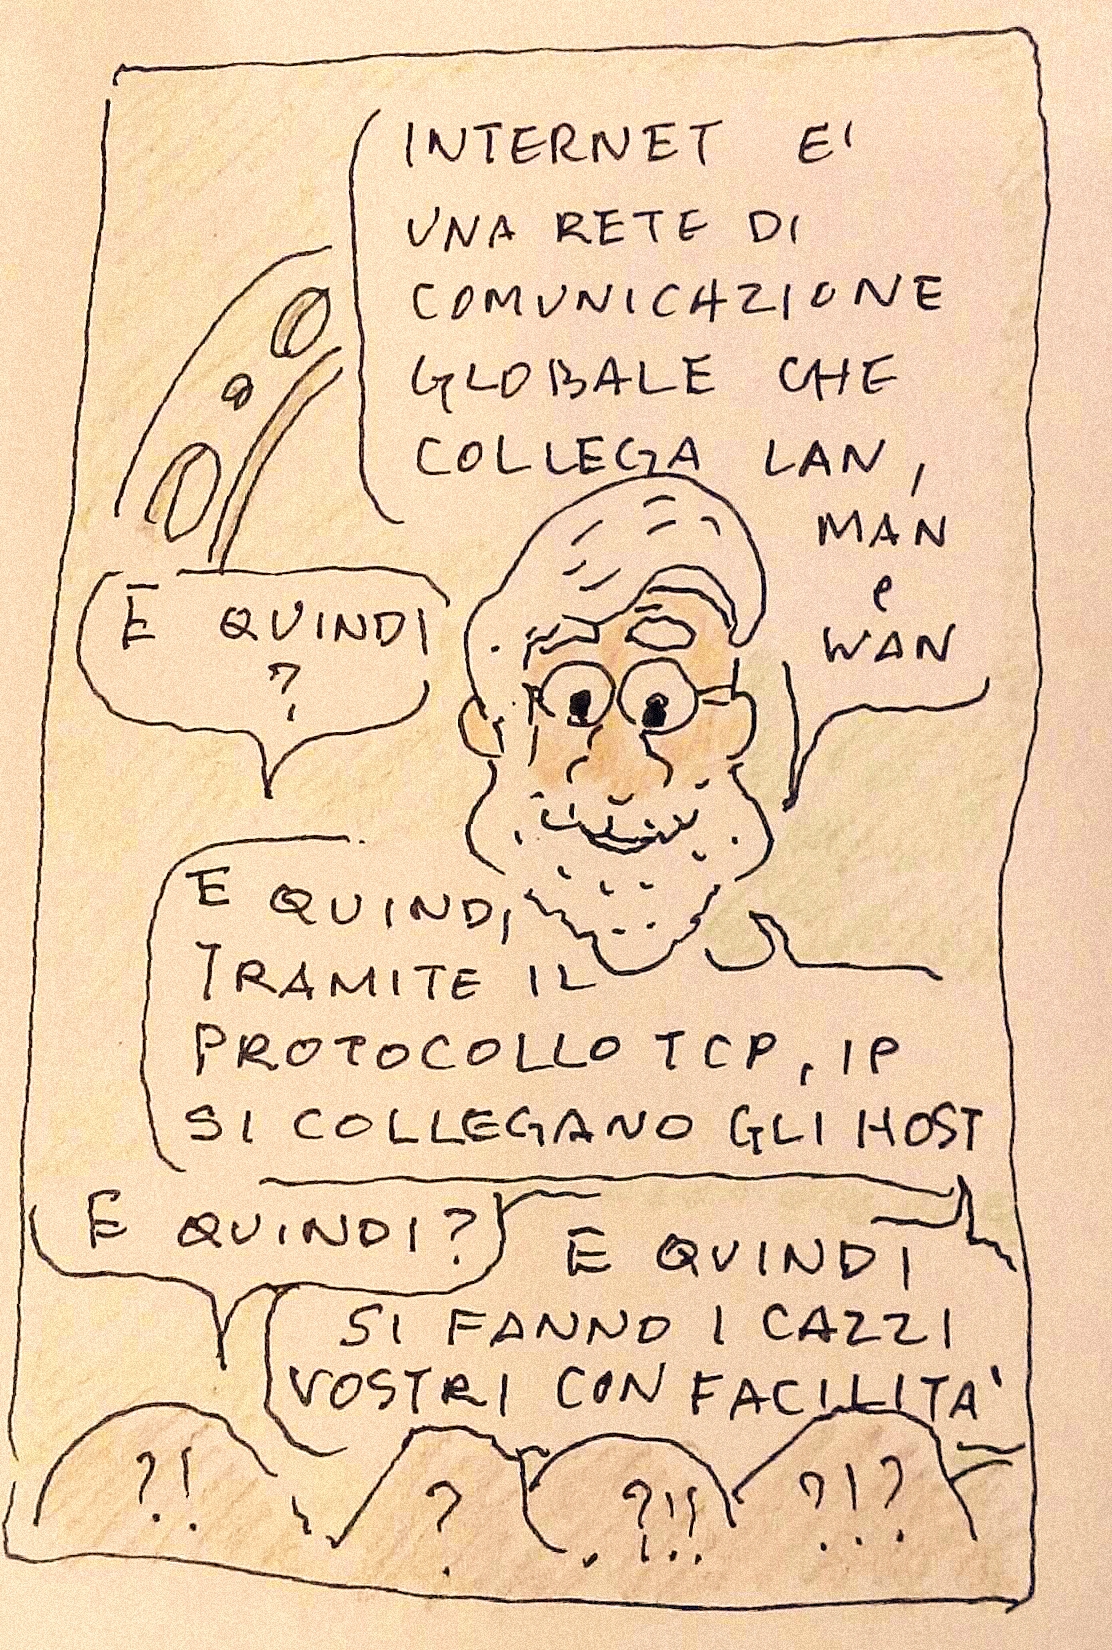 INTERNET E'
UNA RETE DI
COMUNICAZIONE
GLOBALE CHE
COLLEGA LAN,
MAN
e
WAN
E QUINDI
?
E QUINDI,
TRAMITE IL
PROTOCOLLO TCP, IP
SI COLLEGANO GLI HOST
E QUINDI?
E QUINDI
SI FANNO I CAZZI
VOSTRI CON FACILITA'
?! ? ?!! ?!?